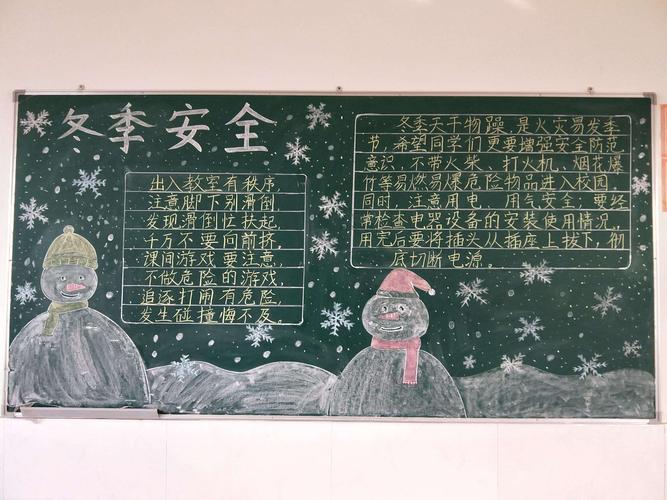 冬季安全
出入教室有秩序,
注意脚下别滑倒,
发现滑倒忙扶起,
千万不要向前挤。
课间游戏要注意
不做危险的游戏,
追逐打闹有危险,
发生碰撞悔不及。
冬季天干物躁,是火灾易发季
节,希望同学们更要增强安全防范
意识,不带火柴、打火机、烟花爆
竹等易燃易爆危险物品进入校园,
同时,注意用电、用气安全;要经
常检查电器设备的安装使用情况,
用完后要将插头从插座上拔下,彻
底切断电源。